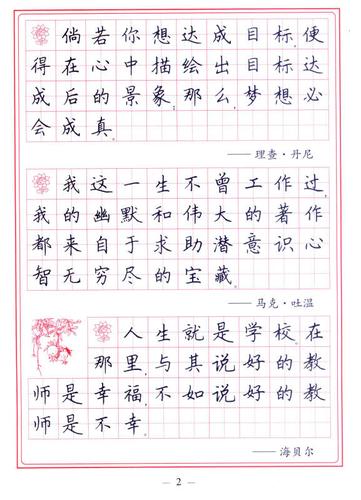 倘若你想达成目标,便
得在心中描绘出目标达
成后的景象;那么,梦想必
会成真。
——理查·丹尼
我这一生不曾工作过,
我的幽默和伟大的著作
都来自于求助潜意识心
智无穷尽的宝藏。
——马克·吐温
人生就是学校。在
那里,与其说好的教
师是幸福,不如说好的教
师是不幸。
——海贝尔
— 2 —